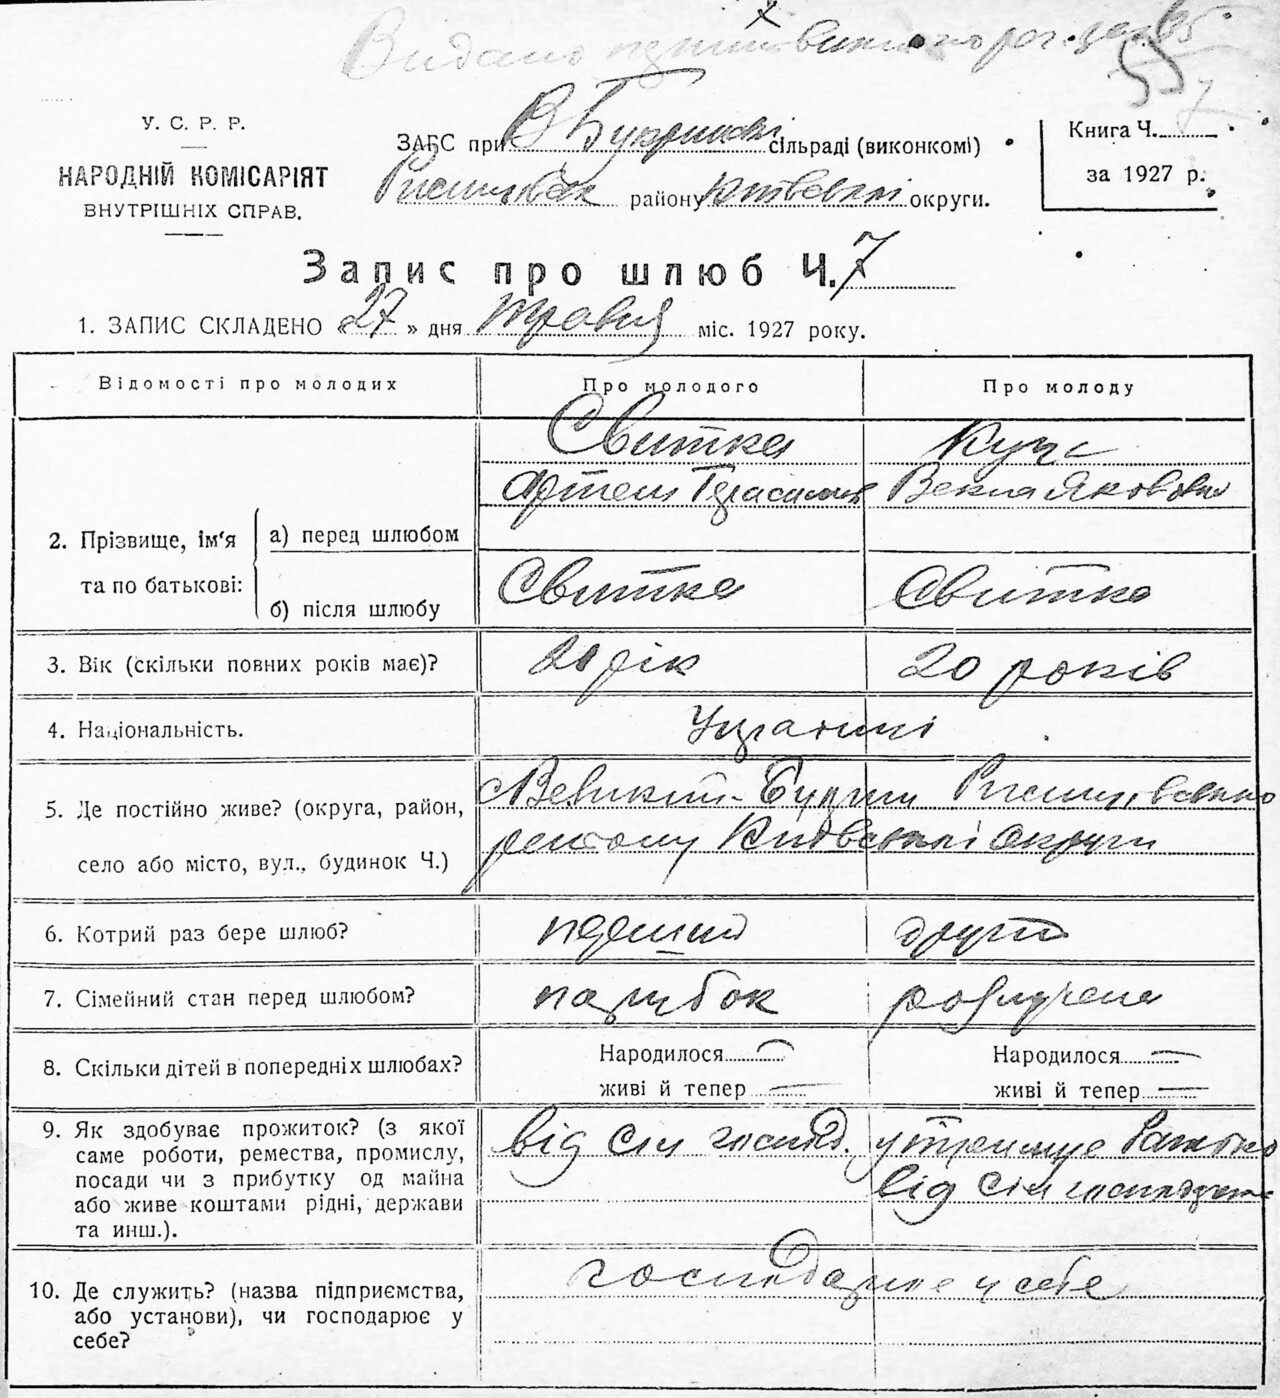 Видано
55
7
У. С. Р. Р.
НАРОДНІЙ КОМІСАРІЯТ
ВНУТРІШНІХ СПРАВ.
ЗАГС при В Букринські сільраді (виконкомі)
району Київські округи.
Книга Ч.
за 1927 р.
Запис про шлюб Ч. 7
1. ЗАПИС СКЛАДЕНО « 27 » дня травня міс. 1927 року.
Відомості про молодих Про молодого Про молоду
Свитка
Артем Герасимов Векла Якововна
2. Прізвище, ім'я та по батькові:
а) перед шлюбом
б) після шлюбу Свитка Свитка
3. Вік (скільки повних років має)? рік 20 років
4. Національність. Українці
5. Де постійно живе? (округа, район, село або місто, вул., будинок Ч.)
Великий-Букрин
Київської округи
6. Котрий раз бере шлюб? перший другий
7. Сімейний стан перед шлюбом? парубок розлучена
8. Скільки дітей в попередніх шлюбах? Народилося — Народилося —
живі й тепер — живі й тепер —
9. Як здобуває прожиток? (з якої саме роботи, ремества, промислу, посади чи з прибутку од майна або живе коштами рідні, держави та инш.).
від сіл господ.
від сіл
10. Де служить? (назва підприємства, або установи), чи господарює у себе?
господарює у себе